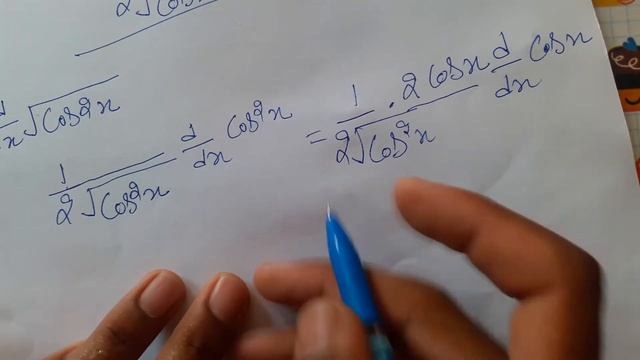 2√cos
d/dx √cos²x
1/(2√cos²x) d/dx cos²x = 1/(2√cos²x) . 2 cosx d/dx cosx